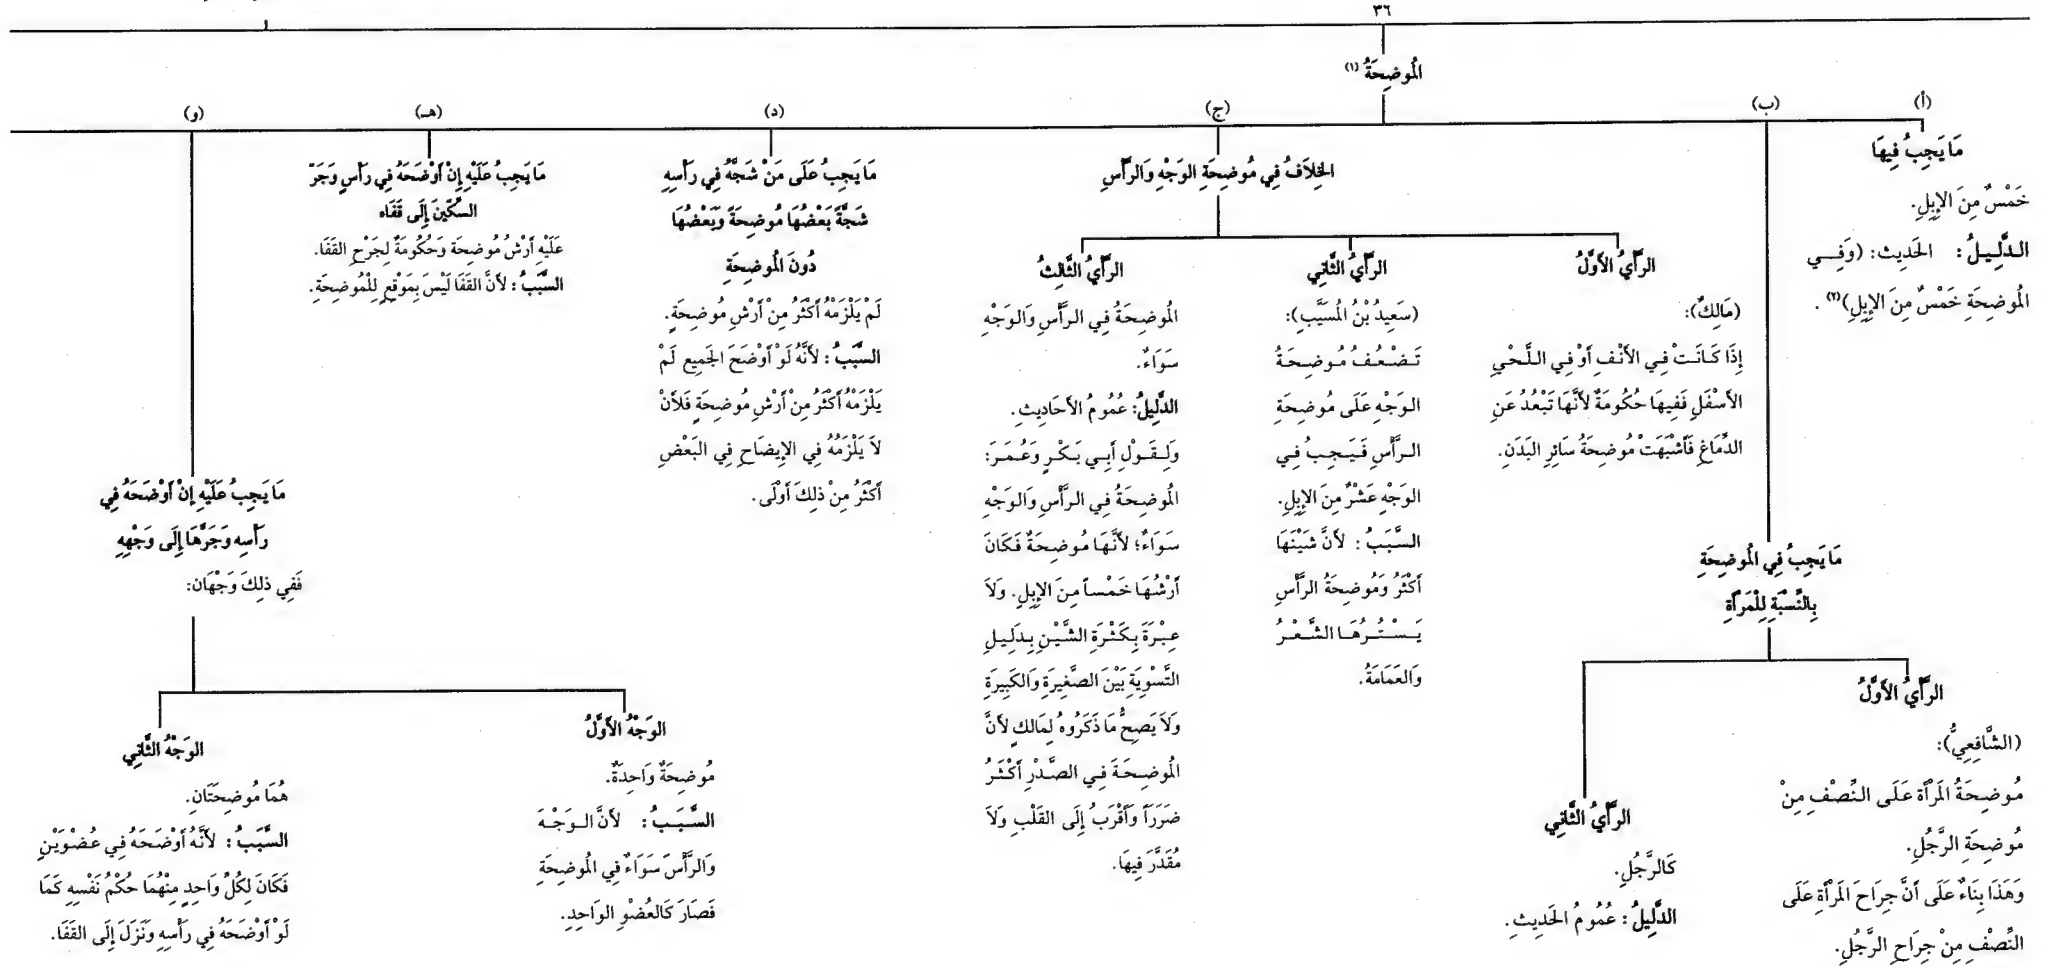 ٣٦
المُوضِحَةُ (١)
(أ)
مَا يَجِبُ فِيهَا
خَمْسٌ مِنَ الإِبِلِ.
الدَّلِيلُ: الحَدِيث: (وَفِي
المُوضِحَةِ خَمْسٌ مِنَ الإِبِلِ)(٢).
(ب)
مَا يَجِبُ فِي المُوضِحَةِ
بِالنِّسْبَةِ لِلْمَرْأَةِ
الرَّأيُ الأَوَّلُ
(الشَّافِعِيُّ):
مُوضِحَةُ المَرْأَةِ عَلَى النِّصْفِ مِنْ
مُوضِحَةِ الرَّجُلِ.
وَهَذَا بِنَاءٌ عَلَى أَنَّ جِرَاحَ المَرْأَةِ عَلَى
النِّصْفِ مِنْ جِرَاحِ الرَّجُلِ.
الرَّأيُ الثَّانِي
كَالرَّجُلِ.
الدَّلِيلُ: عُمُومُ الحَدِيثِ.
(ج)
الخِلاَفُ فِي مُوضِحَةِ الوَجْهِ وَالرَّأْسِ
الرَّأيُ الأَوَّلُ
(مَالِكٌ):
إِذَا كَانَتْ فِي الأَنْفِ أَوْ فِي اللَّحْيِ
الأَسْفَلِ فَفِيهَا حُكُومَةٌ لأَنَّهَا تَبْعُدُ عَنِ
الدِّمَاغِ فَأَشْبَهَتْ مُوضِحَةَ سَائِرِ البَدَنِ.
الرَّأيُ الثَّانِي
(سَعِيدُ بْنُ المُسَيَّبِ):
تَضْعُفُ مُوضِحَةُ
الوَجْهِ عَلَى مُوضِحَةِ
الرَّأْسِ فَيَجِبُ فِي
الوَجْهِ عَشْرٌ مِنَ الإِبِلِ.
السَّبَبُ: لأَنَّ شَيْنَهَا
أَكْثَرُ وَمُوضِحَةُ الرَّأْسِ
يَسْتُرُهَا الشَّعْرُ
وَالعَمَامَةُ.
الرَّأيُ الثَّالِثُ
المُوضِحَةُ فِي الرَّأْسِ وَالوَجْهِ
سَوَاءٌ.
الدَّلِيلُ: عُمُومُ الأَحَادِيثِ.
وَلِقَوْلِ أَبِي بَكْرٍ وَعُمَرَ:
المُوضِحَةُ فِي الرَّأْسِ وَالوَجْهِ
سَوَاءٌ؛ لأَنَّهَا مُوضِحَةٌ فَكَانَ
أَرْشُهَا خَمْساً مِنَ الإِبِلِ. وَلاَ
عِبْرَةَ بِكَثْرَةِ الشَّيْنِ بِدَلِيلِ
التَّسْوِيَةِ بَيْنَ الصَّغِيرَةِ وَالكَبِيرَةِ
وَلاَ يَصِحُّ مَا ذَكَرُوهُ لِمَالِكٍ لأَنَّ
المُوضِحَةَ فِي الصَّدْرِ أَكْثَرُ
ضَرَرَاً وَأَقْرَبُ إِلَى القَلْبِ وَلاَ
مُقَدَّرَ فِيهَا.
(د)
مَا يَجِبُ عَلَى مَنْ شَجَّهُ فِي رَأْسِهِ
شَجَّةً بَعْضُهَا مُوضِحَةً وَبَعْضُهَا
دُونَ المُوضِحَةِ
لَمْ يَلْزَمْهُ أَكْثَرُ مِنْ أَرْشِ مُوضِحَةٍ.
السَّبَبُ: لأَنَّهُ لَوْ أَوْضَحَ الجَمِيع لَمْ
يَلْزَمْهُ أَكْثَرُ مِنْ أَرْشِ مُوضِحَةٍ فَلأَنْ
لاَ يَلْزَمُهُ فِي الإِيضَاحِ فِي البَعْضِ
أَكْثَرُ مِنْ ذلِكَ أَوْلَى.
(هـ)
مَا يَجِبُ عَلَيْهِ إِنْ أَوْضَحَهُ فِي رَأْسٍ وَجَرّ
السِّكِّينَ إِلَى قَفَاه
عَلَيْهِ أَرْشُ مُوضِحَة وَحُكُومَةٌ لِجَرْحِ القَفَا.
السَّبَبُ: لأَنَّ القَفَا لَيْسَ بِمَوْقِعٍ لِلْمُوضِحَةِ.
(و)
مَا يَجِبُ عَلَيْهِ إِنْ أَوْضَحَهُ فِي
رَأْسِهِ وَجَرَّهَا إِلَى وَجْهِهِ
فَفِي ذلِكَ وَجْهَان:
الوَجْهُ الأَوَّلُ
مُوضِحَةٌ وَاحِدَةٌ.
السَّبَبُ: لأَنَّ الوَجْهَ
وَالرَّأْسَ سَوَاءٌ فِي المُوضِحَةِ
فَصَارَ كَالعُضْوِ الوَاحِدِ.
الوَجْهُ الثَّانِي
هُمَا مُوضِحَتَانِ.
السَّبَبُ: لأَنَّهُ أَوْضَحَهُ فِي عُضْوَيْنِ
فَكَانَ لِكُلِّ وَاحِدٍ مِنْهُمَا حُكْمُ نَفْسِهِ كَمَا
لَوْ أَوْضَحَهُ فِي رَأْسِهِ وَنَزَلَ إِلَى القَفَا.